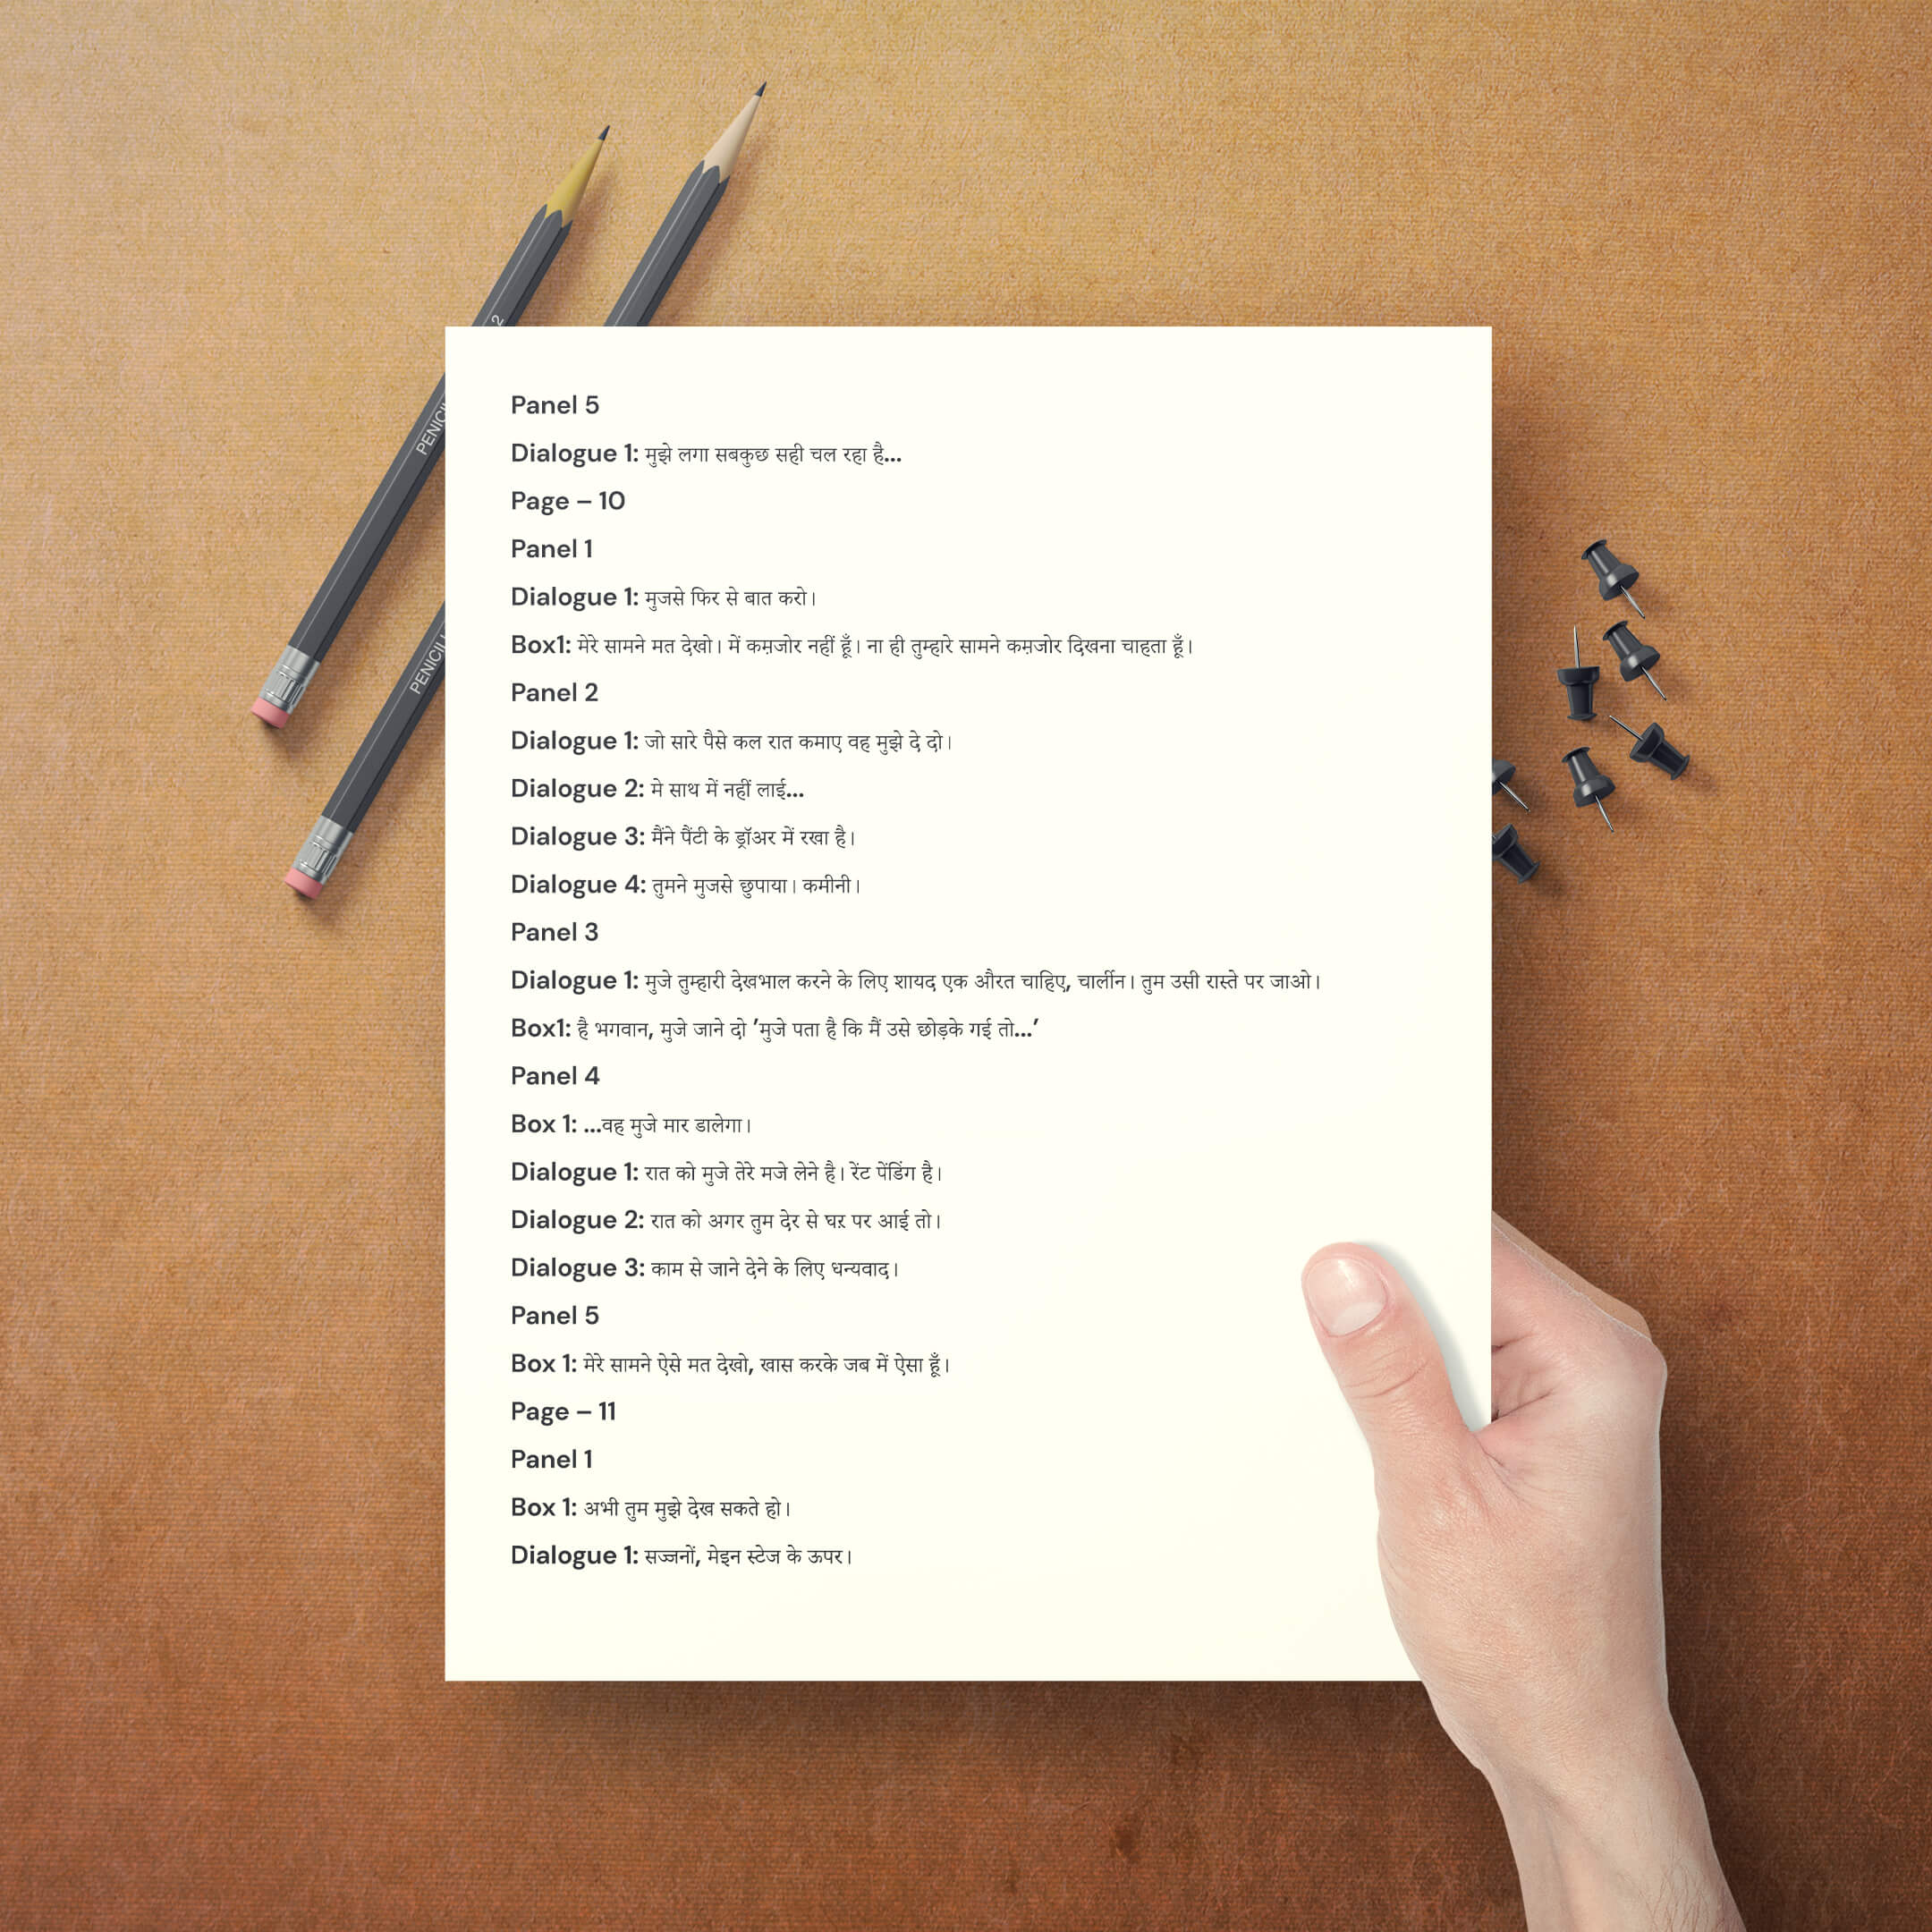 2
PENICIL
PENICIL
Panel 5
Dialogue 1: मुझे लगा सबकुछ सही चल रहा है...
Page – 10
Panel 1
Dialogue 1: मुजसे फिर से बात करो।
Box1: मेरे सामने मत देखो। में कम़जोर नहीं हूँ। ना ही तुम्हारे सामने कम़जोर दिखना चाहता हूँ।
Panel 2
Dialogue 1: जो सारे पैसे कल रात कमाए वह मुझे दे दो।
Dialogue 2: मे साथ में नहीं लाई...
Dialogue 3: मैंने पैंटी के ड्रॉअर में रखा है।
Dialogue 4: तुमने मुजसे छुपाया। कमीनी।
Panel 3
Dialogue 1: मुजे तुम्हारी देखभाल करने के लिए शायद एक औरत चाहिए, चार्लीन। तुम उसी रास्ते पर जाओ।
Box1: है भगवान, मुजे जाने दो ’मुजे पता है कि मैं उसे छोड़के गई तो...’
Panel 4
Box 1: ...वह मुजे मार डालेगा।
Dialogue 1: रात को मुजे तेरे मजे लेने है। रेंट पेंडिंग है।
Dialogue 2: रात को अगर तुम देर से घऱ पर आई तो।
Dialogue 3: काम से जाने देने के लिए धन्यवाद।
Panel 5
Box 1: मेरे सामने ऐसे मत देखो, खास करके जब में ऐसा हूँ।
Page – 11
Panel 1
Box 1: अभी तुम मुझे देख सकते हो।
Dialogue 1: सज्जनों, मेइन स्टेज के ऊपर।